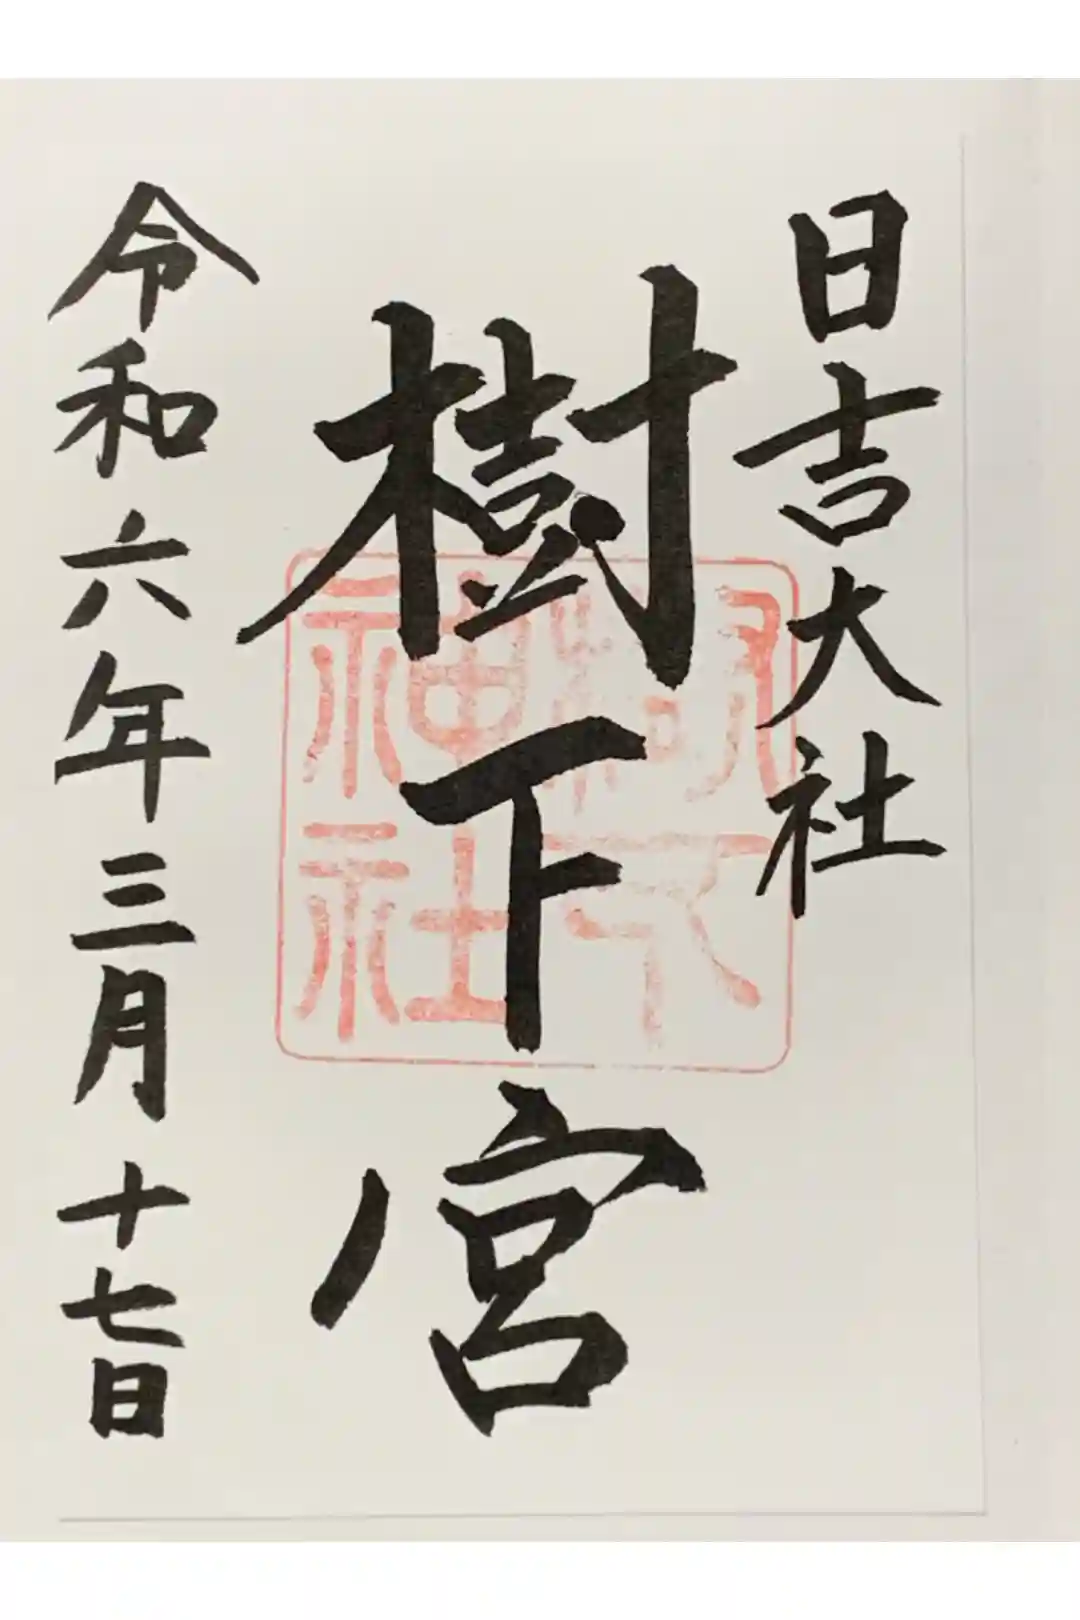 日吉大社
樹下宮
令和六年三月十七日
樹下
神社